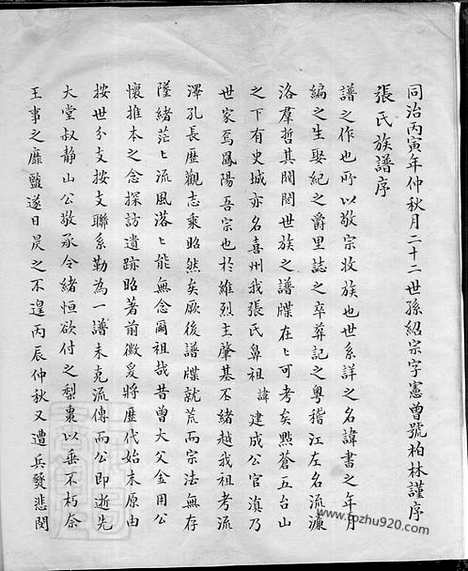 同治丙寅年仲秋月二十二世孫紹宗字憲曾號柏林謹序
張氏族譜序
譜之作也所以敬宗收族也世系詳之名諱書之年月
編之生娶紀之爵里誌之卒葬記之粵稽江左名流濂
洛羣哲其閥閱世族之譜牒在在可考矣點蒼五台山
之下有史城亦名喜州我張氏鼻祖 諱 建成公官滇乃
世家焉鳳陽吾宗也於維烈主肇基丕緒越我祖考流
澤孔長歷觀志乘昭然矣厥後譜牒就荒而宗法無存
墜緒茫々流風落々能無念爾祖哉昔曾大父金用公
懷推本之念探訪遺跡昭著前徽爰將歷代始末原由
按世分支按支聯系勒為一譜未克流傳而公即逝先
大堂叔靜山公敬承令緒恒欲付之梨棗以垂不朽奈
王事之靡盬遂日晨之不遑丙辰仲秋又遭兵燹悲閱
www.tpzhu920.com